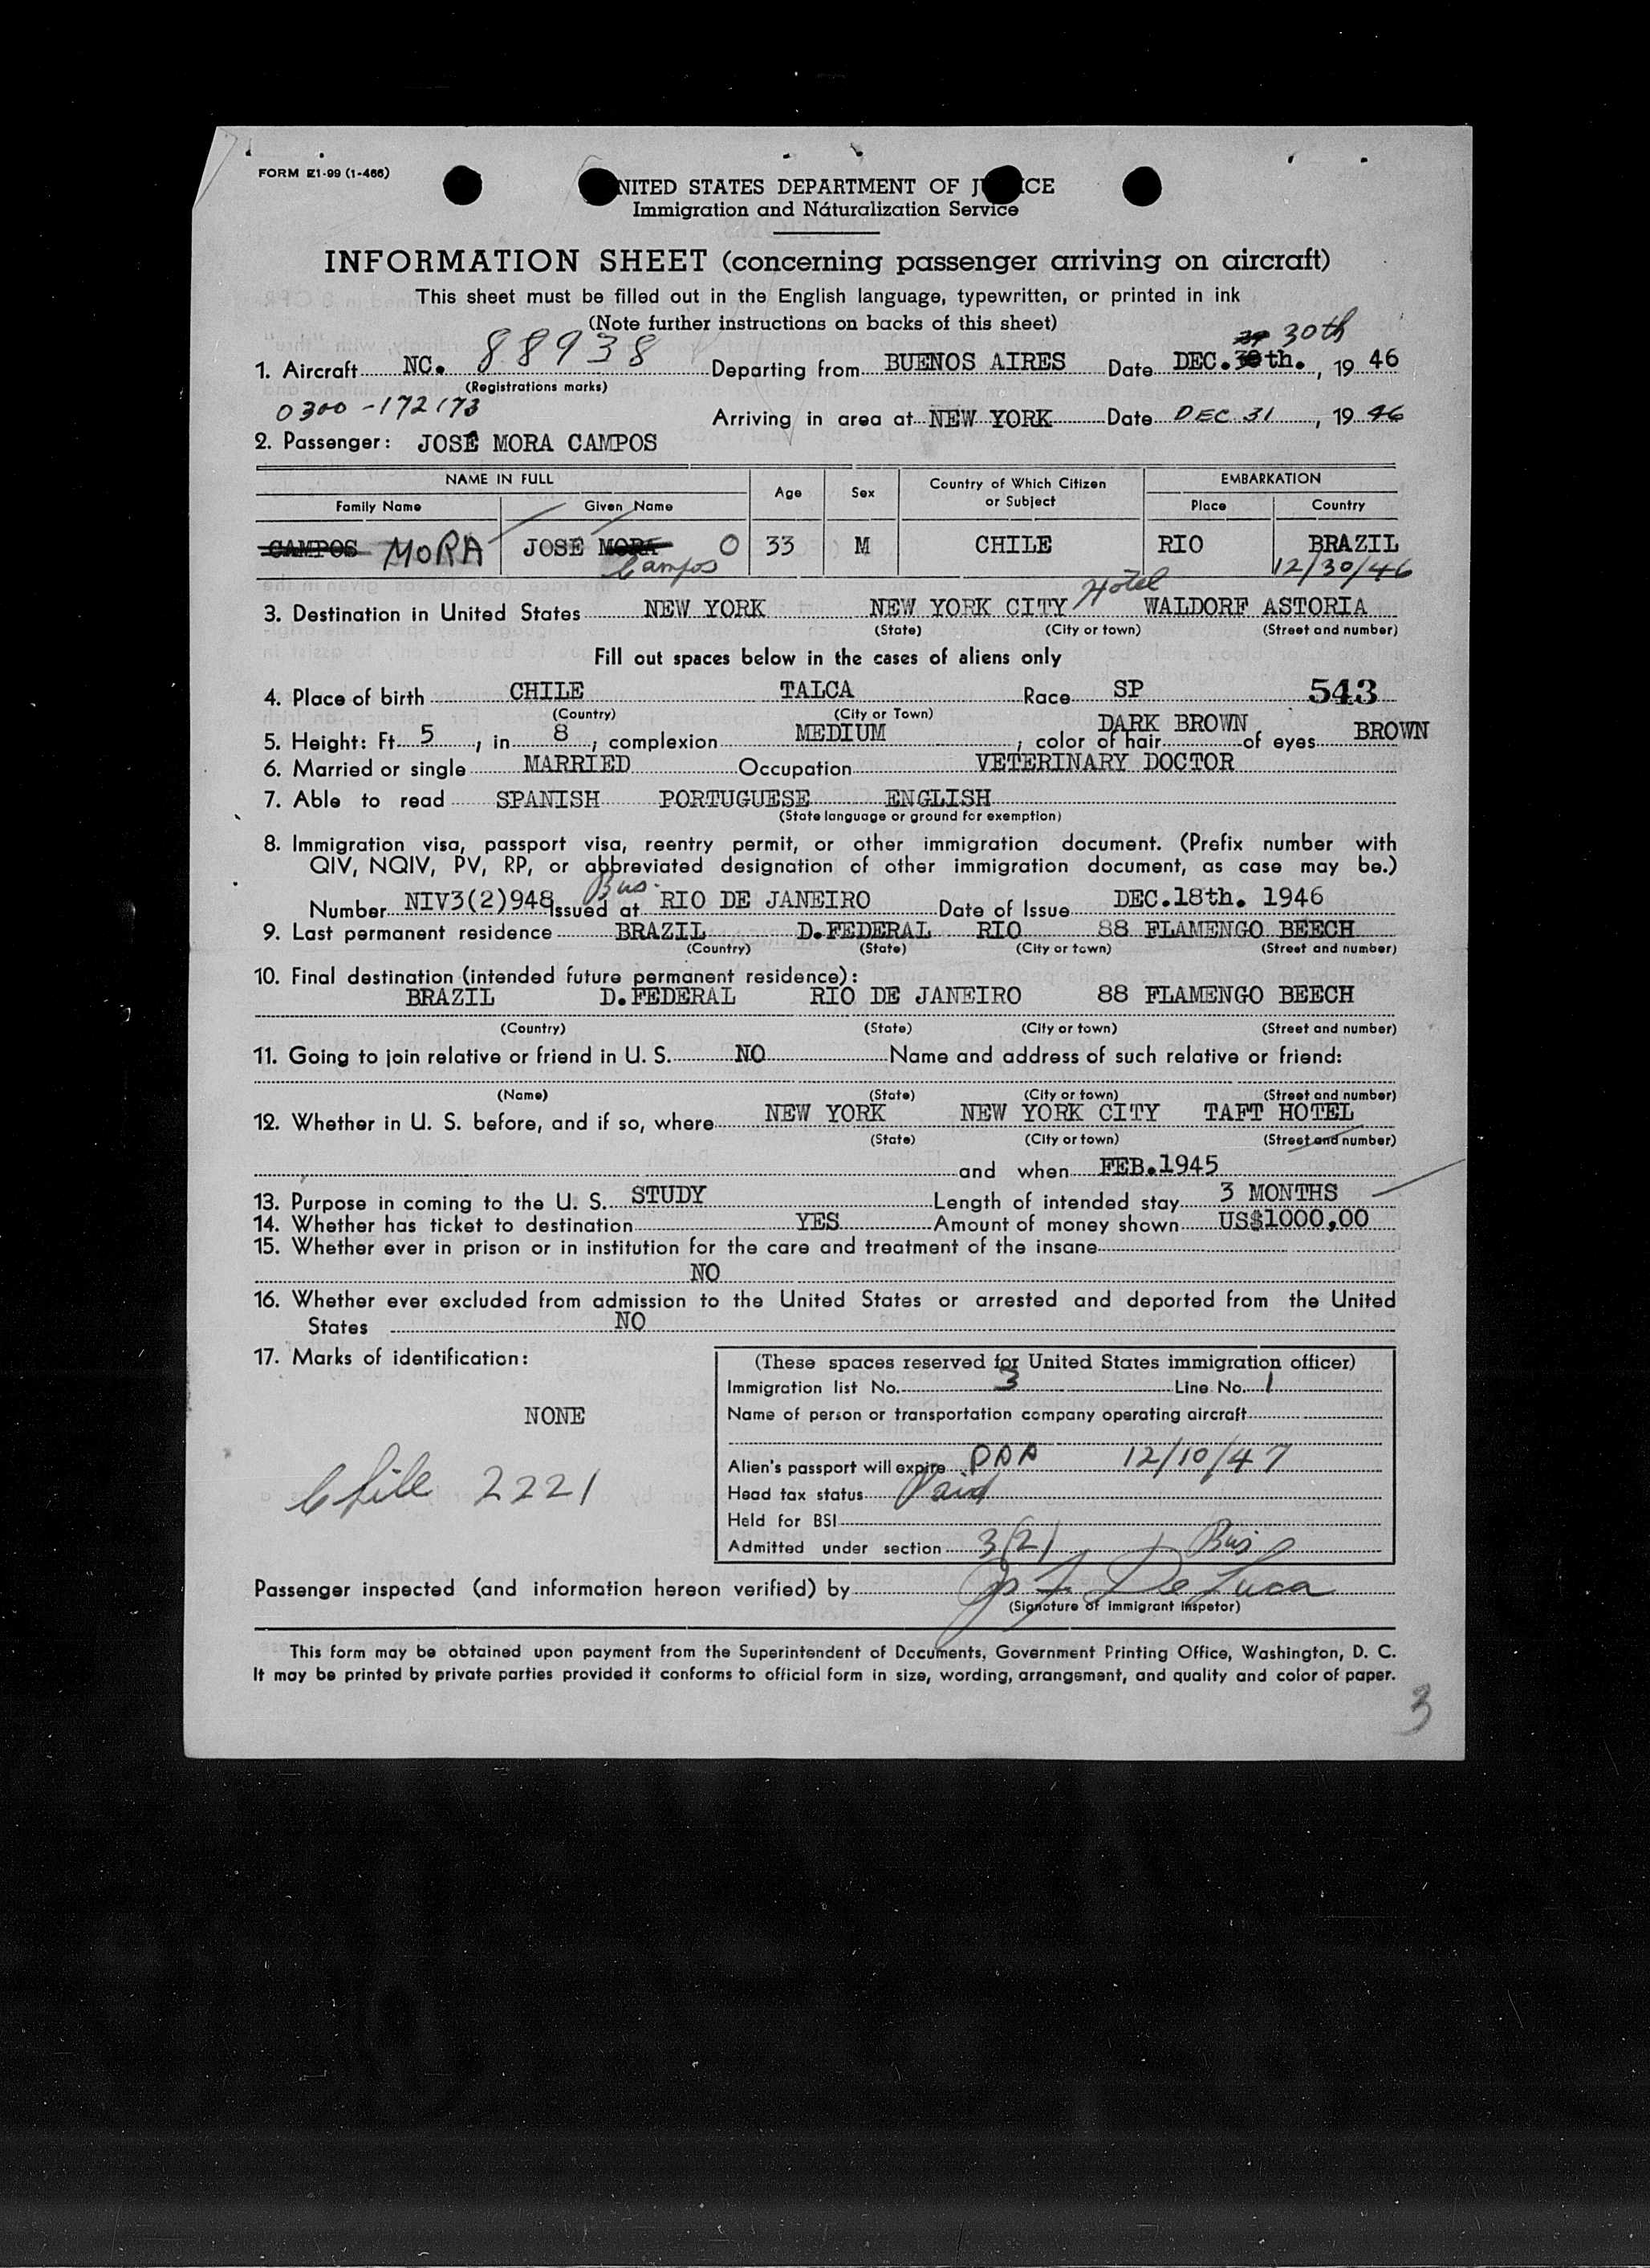 FORM I-99 (1-466)
UNITED STATES DEPARTMENT OF JUSTICE
Immigration and Naturalization Service
INFORMATION SHEET (concerning passenger arriving on aircraft)
This sheet must be filled out in the English language, typewritten, or printed in ink
(Note further instructions on backs of this sheet)
30th
1. Aircraft NC. 88938 Departing from BUENOS AIRES Date DEC. th. , 19 46
(Registrations marks)
0300-172173
Arriving in area at NEW YORK Date DEC 31 , 19 46
2. Passenger: JOSÉ MORA CAMPOS
NAME IN FULL Age Sex Country of Which Citizen or Subject EMBARKATION
Family Name Given Name Place Country
CAMPOS MORA JOSE MORA O 33 M CHILE RIO BRAZIL
Campos 12/30/46
Hotel
3. Destination in United States NEW YORK NEW YORK CITY WALDORF ASTORIA
(State) (City or town) (Street and number)
Fill out spaces below in the cases of aliens only
4. Place of birth CHILE TALCA Race SP 543
(Country) (City or Town)
5. Height: Ft. 5 , in 8 , complexion MEDIUM ; color of hair DARK BROWN of eyes BROWN
6. Married or single MARRIED Occupation VETERINARY DOCTOR
7. Able to read SPANISH PORTUGUESE ENGLISH
(State language or ground for exemption)
8. Immigration visa, passport visa, reentry permit, or other immigration document. (Prefix number with
QIV, NQIV, PV, RP, or abbreviated designation of other immigration document, as case may be.)
Bus.
Number NIV3(2)948 Issued at RIO DE JANEIRO Date of Issue DEC.18th. 1946
9. Last permanent residence BRAZIL D.FEDERAL RIO 88 FLAMENGO BEECH
(Country) (State) (City or town) (Street and number)
10. Final destination (intended future permanent residence):
BRAZIL D.FEDERAL RIO DE JANEIRO 88 FLAMENGO BEECH
(Country) (State) (City or town) (Street and number)
11. Going to join relative or friend in U. S. NO Name and address of such relative or friend:
(Name) (State) (City or town) (Street and number)
12. Whether in U. S. before, and if so, where NEW YORK NEW YORK CITY TAFT HOTEL
(State) (City or town) (Street and number)
and when FEB.1945
13. Purpose in coming to the U. S. STUDY Length of intended stay 3 MONTHS
14. Whether has ticket to destination YES Amount of money shown US$1000,00
15. Whether ever in prison or in institution for the care and treatment of the insane
NO
16. Whether ever excluded from admission to the United States or arrested and deported from the United
States NO
17. Marks of identification:
NONE
Chile 2221
(These spaces reserved for United States immigration officer)
Immigration list No. 3 Line No. 1
Name of person or transportation company operating aircraft
Alien's passport will expire PAA 12/10/47
Head tax status Paid
Held for BSI
Admitted under section 3(2) Bus
Passenger inspected (and information hereon verified) by De Luca
(Signature of Immigrant Inspetor)
This form may be obtained upon payment from the Superintendent of Documents, Government Printing Office, Washington, D. C.
It may be printed by private parties provided it conforms to official form in size, wording, arrangement, and quality and color of paper.
3